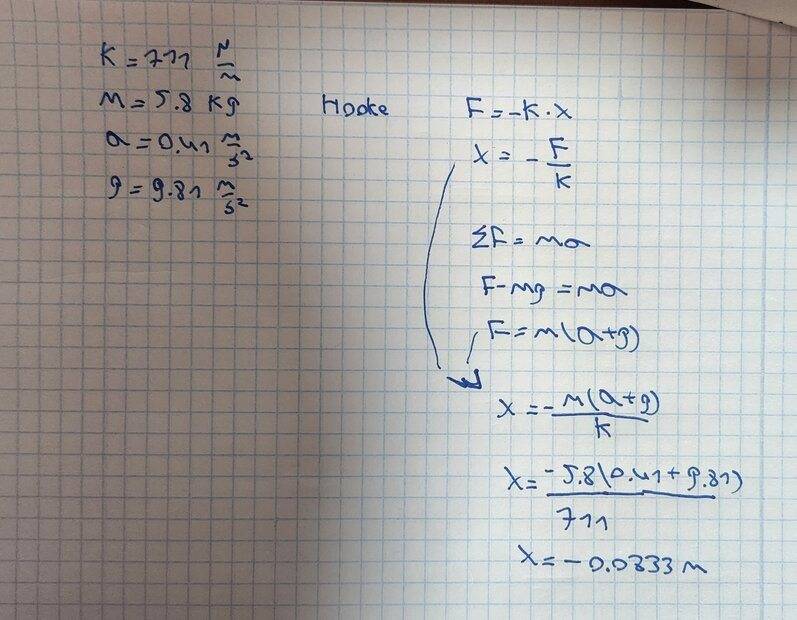 K = 711 N/m
m = 5.8 kg
a = 0.41 m/s²
g = 9.81 m/s²
Hooke F = -K · x
x = - F/K
ΣF = ma
F - mg = ma
F = m(a+g)
x = - m(a+g)/K
x = -5.8(0.41 + 9.81)/711
x = -0.0833 m